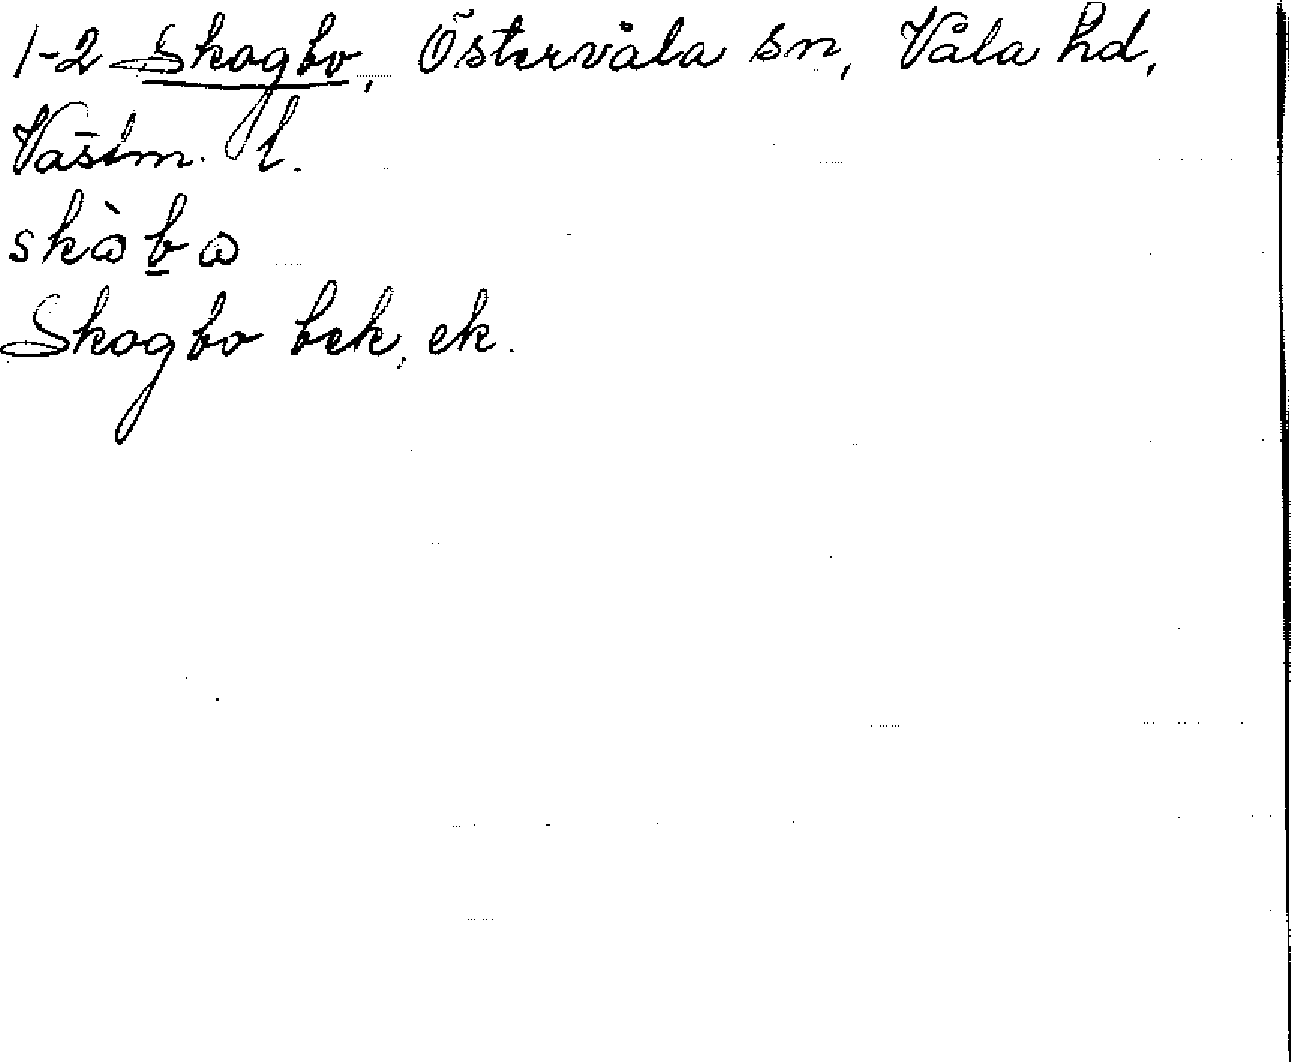 1-2 Skogbo, Östervåla sn, Våla hd,
Västm. l.
skὼba
Skogbo bek, ek.